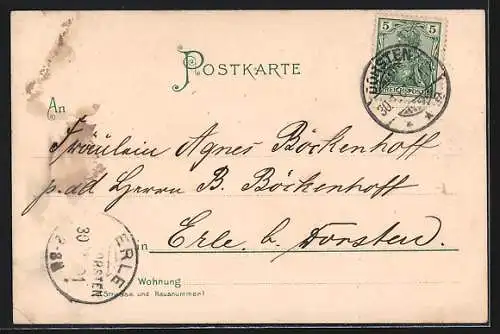 5 5
REICHSPOST
DORSTEN
30
POSTKARTE
An
Fräulein Agnes Böckenhoff
p. ad Herrn B. Böckenhoff
in Erle b. Dorsten.
ERLE
DORSTEN
30
Wohnung
(Strasse und Hausnummer)